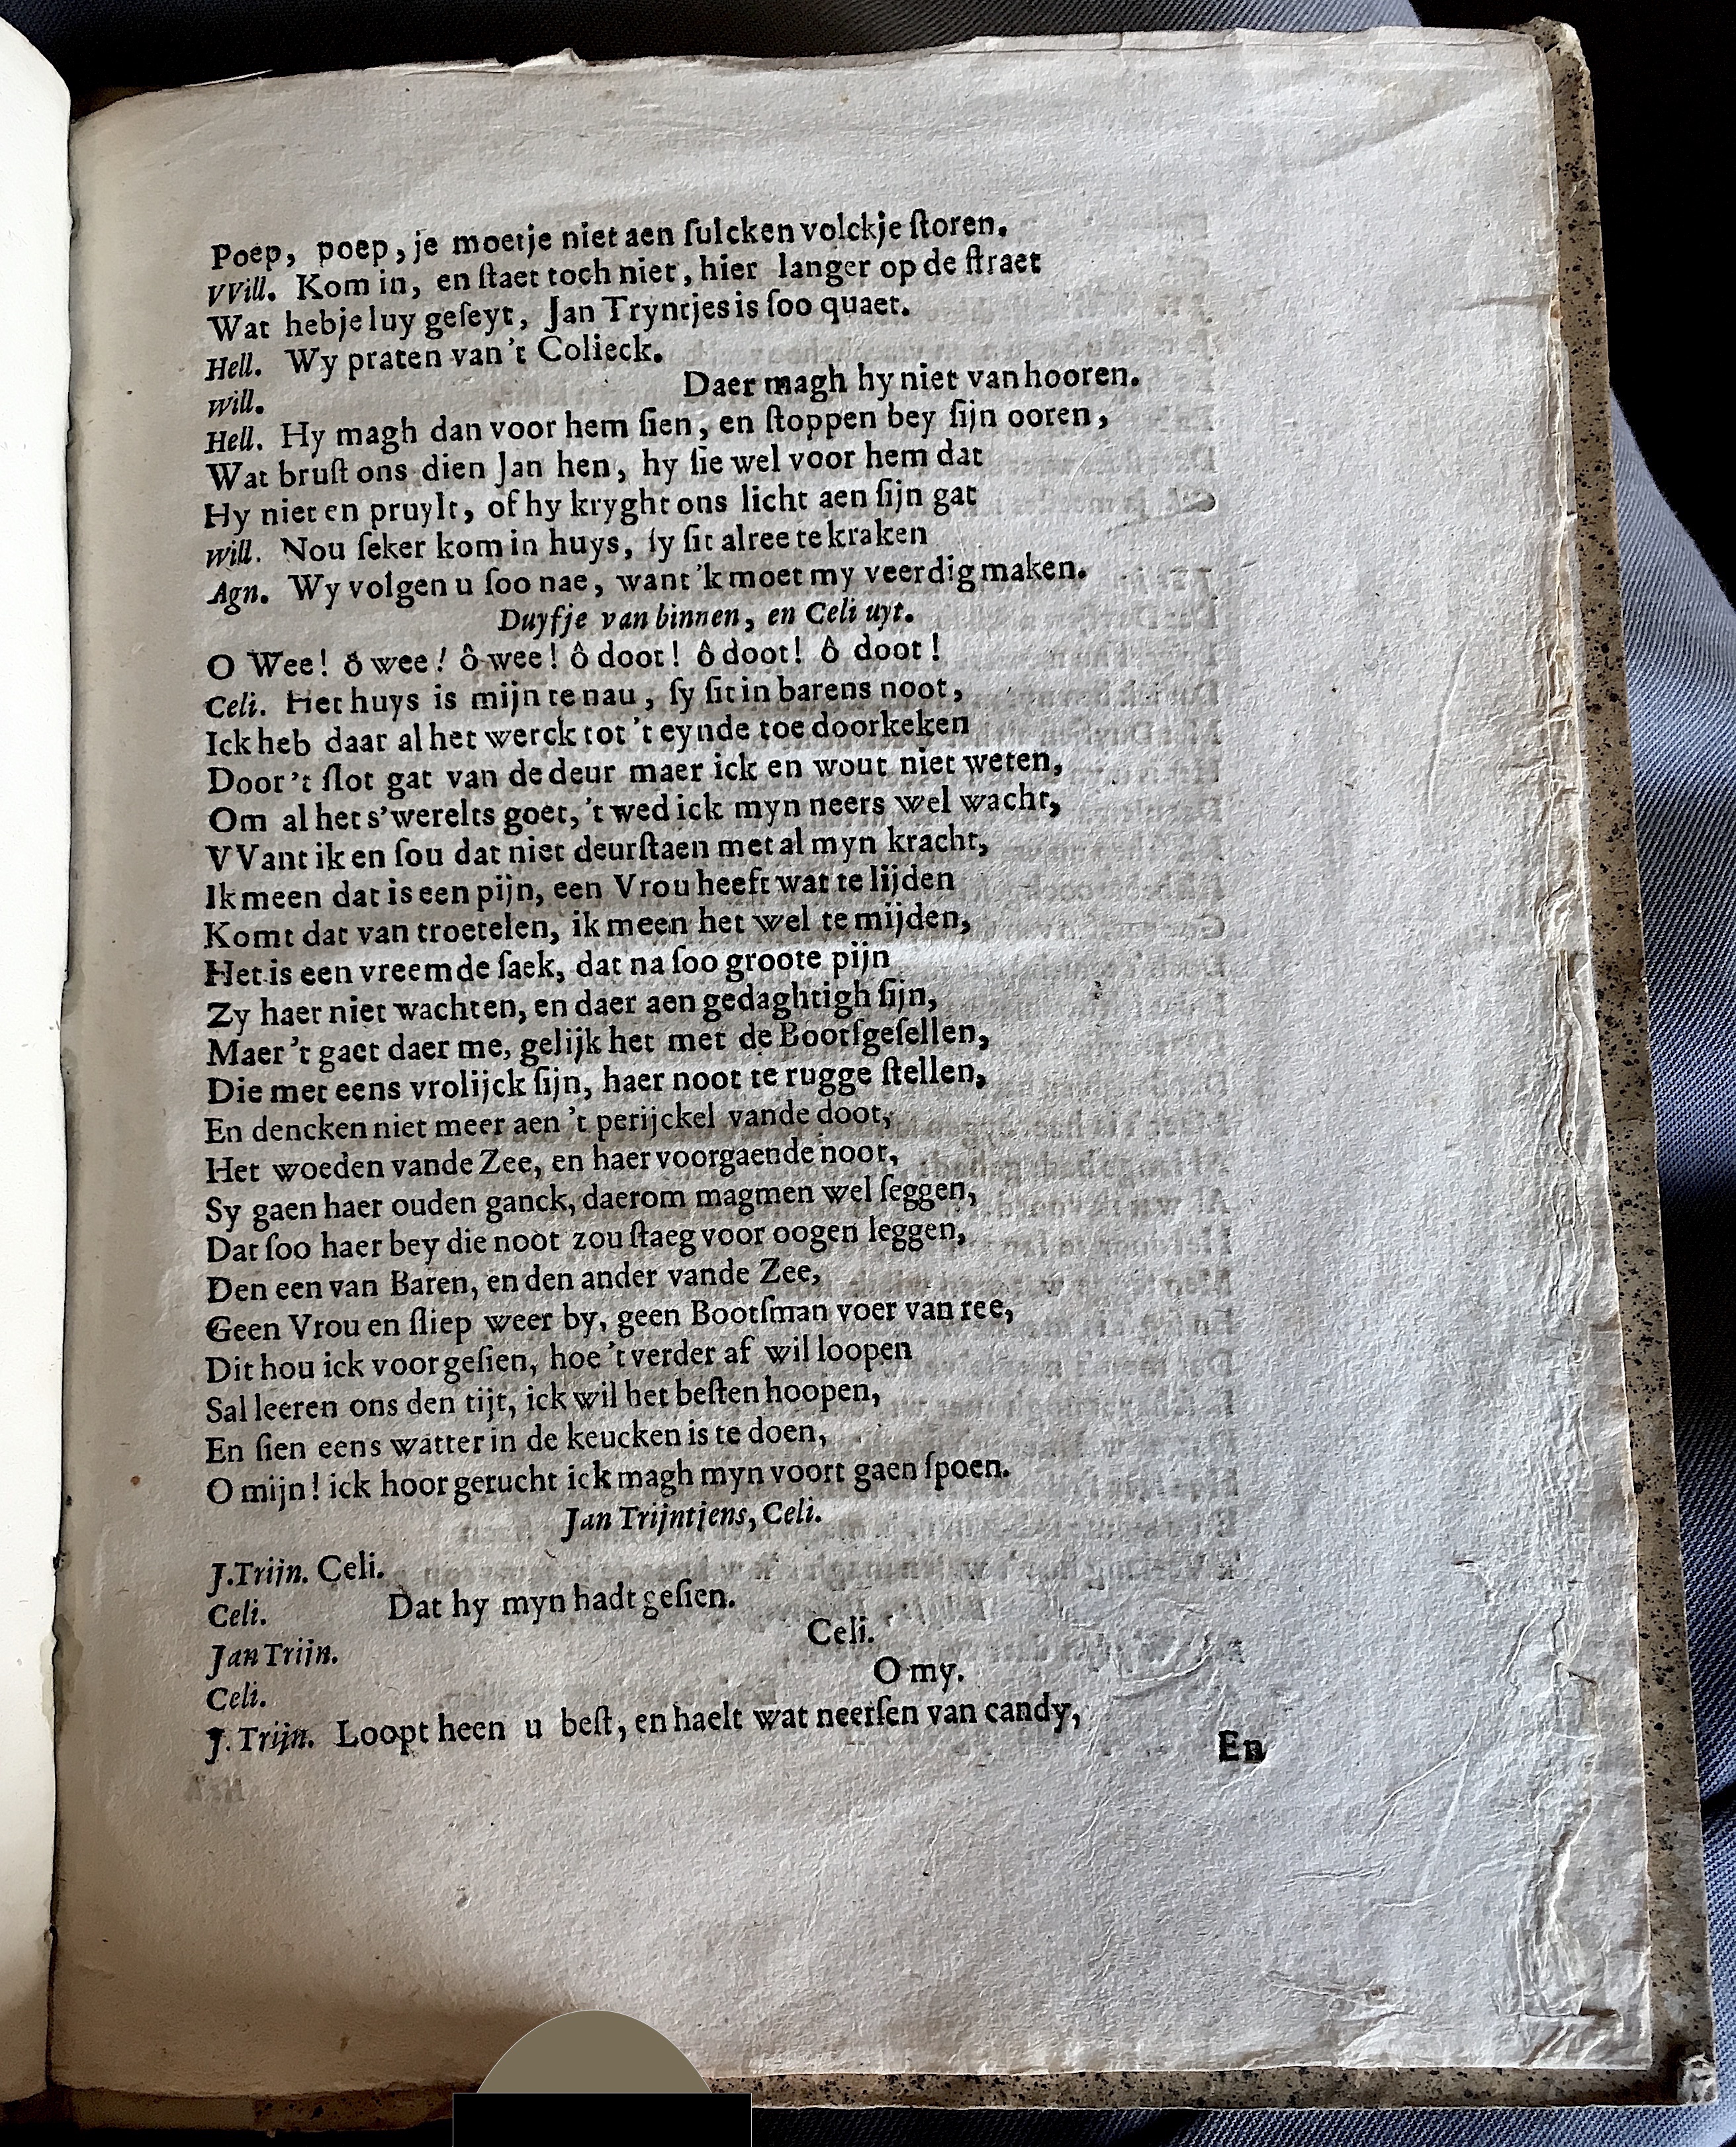 Poep, poep, je moetje niet aen ſulcken volckje ſtoren.
VVill. Kom in, en ſtaet toch niet, hier langer op de ſtraet
Wat hebje luy geſeyt, Jan Tryntjes is ſoo quaet.
Hell. Wy praten van 't Colieck.
Will. Daer magh hy niet van hooren.
Hell. Hy magh dan voor hem ſien, en ſtoppen bey ſijn ooren,
Wat bruſt ons dien Jan hen, hy ſie wel voor hem dat
Hy niet en pruylt, of hy kryght ons licht aen ſijn gat
Will. Nou ſeker kom in huys, ſy ſit alree te kraken
Agn. Wy volgen u ſoo nae, want 'k moet my veerdig maken.
Duyfje van binnen, en Celi uyt.
O Wee! ô wee! ô wee! ô doot! ô doot! ô doot!
Celi. Het huys is mijn te nau, ſy ſit in barens noot,
Ick heb daar al het werck tot 't eynde toe doorkeken
Door 't ſlot gat van de deur maer ick en wout niet weten,
Om al het s'werelts goet, 't wed ick myn neers wel wacht,
VVant ik en ſou dat niet deurſtaen met al myn kracht,
Ik meen dat is een pijn, een Vrou heeft wat te lijden
Komt dat van troetelen, ik meen het wel te mijden,
Het is een vreemde ſaek, dat na ſoo groote pijn
Zy haer niet wachten, en daer aen gedaghtigh ſijn,
Maer 't gaet daer me, gelijk het met de Bootſgeſellen,
Die met eens vrolijck ſijn, haer noot te rugge ſtellen,
En dencken niet meer aen 't perijckel vande doot,
Het woeden vande Zee, en haer voorgaende noot,
Sy gaen haer ouden ganck, daerom magmen wel ſeggen,
Dat ſoo haer bey die noot zou ſtaeg voor oogen leggen,
Den een van Baren, en den ander vande Zee,
Geen Vrou en ſliep weer by, geen Bootſman voer van ree,
Dit hou ick voor geſien, hoe 't verder af wil loopen
Sal leeren ons den tijt, ick wil het beſten hoopen,
En ſien eens watter in de keucken is te doen,
O mijn! ick hoor gerucht ick magh myn voort gaen ſpoen.
Jan Trijntjens, Celi.
J.Trijn. Celi.
Celi. Dat hy myn hadt geſien.
Jan Trijn. Celi.
Celi. O my.
J. Trijn. Loopt heen u beſt, en haelt wat neerſen van candy,
En